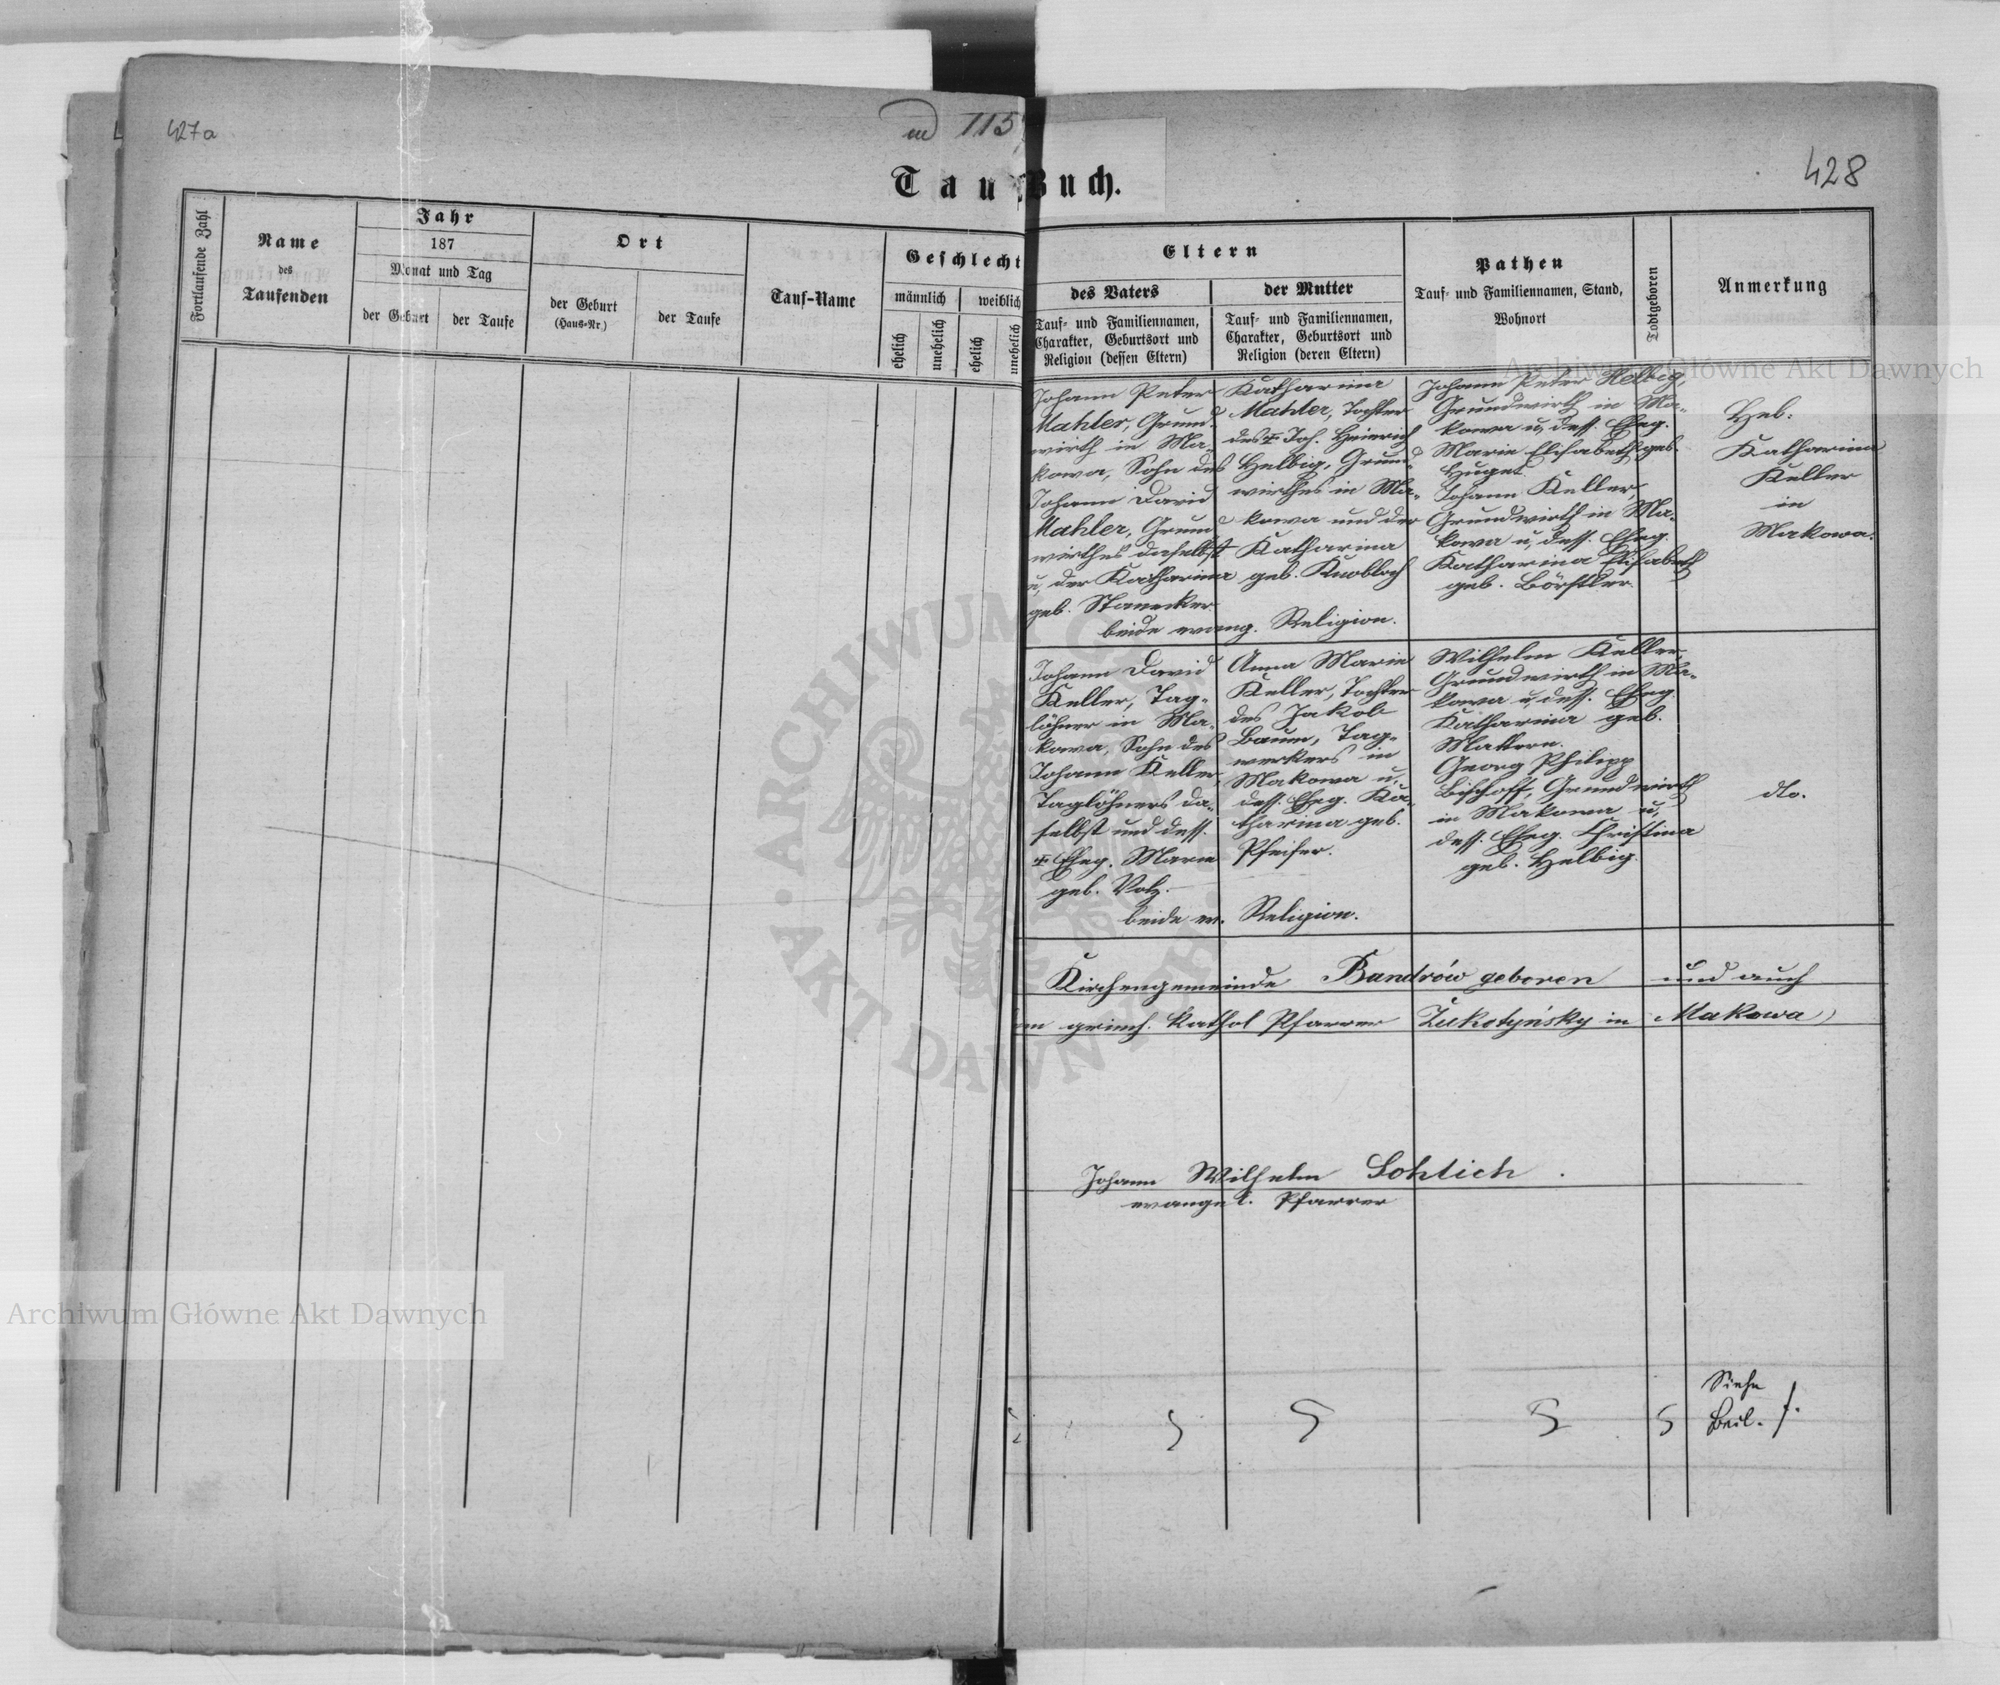 427a
ad 115
428
Tau Buch.
Fortlaufende Zahl
Name
des
Taufenden
Jahr
187
Monat und Tag
der Geburt
der Taufe
Ort
der Geburt
(Haus-Nr.)
der Taufe
Tauf-Name
Geschlecht
männlich
weiblich
ehelich
unehelich
ehelich
unehelich
Eltern
des Vaters
Tauf- und Familiennamen,
Charakter, Geburtsort und
Religion (dessen Eltern)
der Mutter
Tauf- und Familiennamen,
Charakter, Geburtsort und
Religion (deren Eltern)
Pathen
Tauf- und Familiennamen, Stand,
Wohnort
Todtgeboren
Anmerkung
Johann Peter
Mahler, Grund-
wirth in Ma-
kowa, Sohn des
Johann David
Mahler, Grund-
wirthes daselbst
u. der Katharina
geb. Stanecker
Katharina
Mahler, Tochter
des + Joh. Heinrich
Helbig, Grund-
wirthes in Ma-
kowa und der
Katharina
geb. Knobloch
beide evang. Religion.
Johann Peter Helbig,
Grundwirth in Ma-
kowa u. dess. Eheg.
Marie Elisabeth geb.
Huget
Johann Keller,
Grundwirth in Ma-
kowa u. dess. Eheg.
Katharina Elisabeth
geb. Börstler.
Heb.
Katharina
Keller
in
Makowa.
Johann David
Keller, Tag-
löhner in Ma-
kowa, Sohn des
Johann Keller,
Taglöhners da-
selbst und dess.
+ Eheg. Marie
geb. Volz.
Anna Marie
Keller, Tochter
des Jakob
Baum, Tag-
werkers in
Makowa u.
dess. Eheg. Ka-
tharina geb.
Pfeifer.
beide ev. Religion.
Wilhelm Keller,
Grundwirth in Ma-
kowa u. dess. Eheg.
Katharina geb.
Mattern.
Georg Philipp
Bischoff, Grundwirth
in Makowa u.
dess. Eheg. Christina
geb. Helbig.
dto.
Kirchengemeinde Bandrów geboren und auch
griech. kathol Pfarrer Zukotyńsky in Makowa)
Johann Wilhelm Lohlich.
evangel. Pfarrer
Siehe
Beil. f.
Archiwum Główne Akt Dawnych
Archiwum Główne Akt Dawnych
ARCHIWUM
AKT DAWNYCH